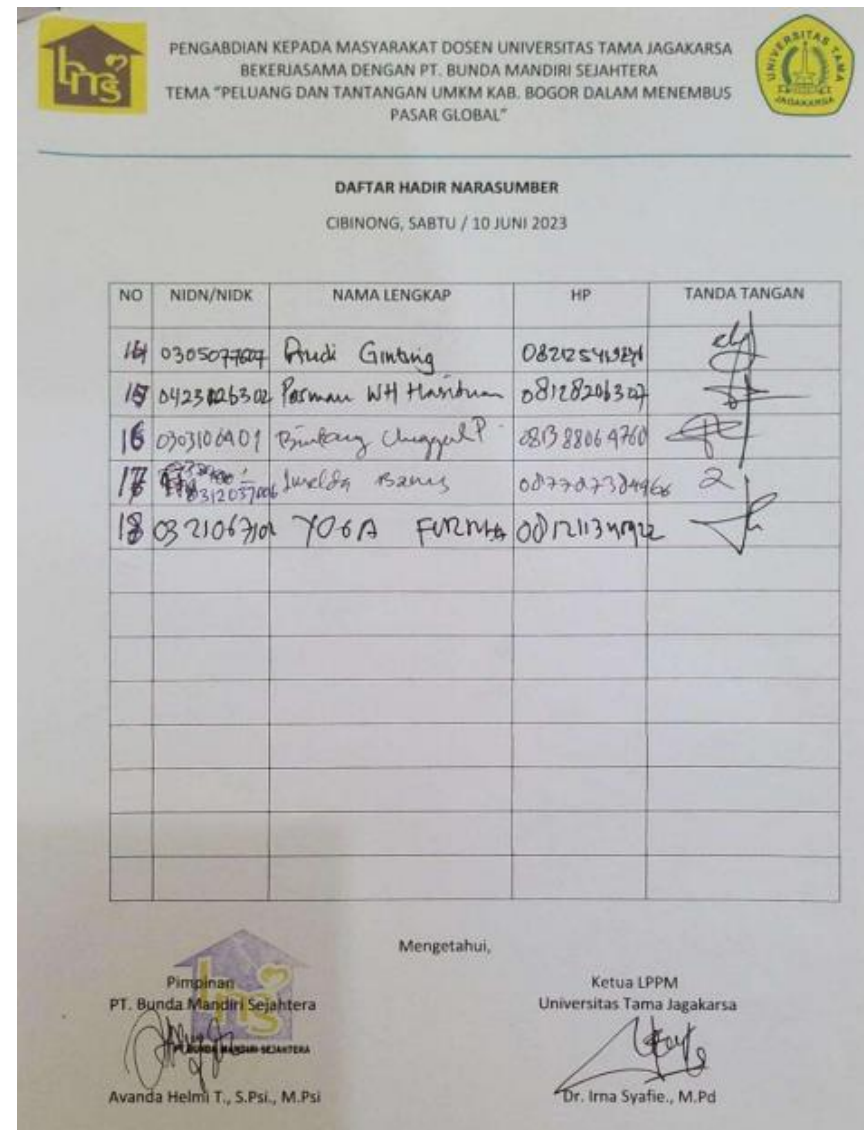 bms
PENGABDIAN KEPADA MASYARAKAT DOSEN UNIVERSITAS TAMA JAGAKARSA
BEKERJASAMA DENGAN PT. BUNDA MANDIRI SEJAHTERA
TEMA "PELUANG DAN TANTANGAN UMKM KAB. BOGOR DALAM MENEMBUS
PASAR GLOBAL"
UNIVERSITAS TAMA
JAGAKARSA
DAFTAR HADIR NARASUMBER
CIBINONG, SABTU / 10 JUNI 2023
NO NIDN/NIDK NAMA LENGKAP HP TANDA TANGAN
14 Ginting
15 WH
16 0303106401 Bintang 081388064760
17 0312037006 087707384966
18 YOGA
Mengetahui,
Pimpinan
PT. Bunda Mandiri Sejahtera
bms
PT. BUNDA MANDIRI SEJAHTERA
Avanda Helmi T., S.Psi., M.Psi
Ketua LPPM
Universitas Tama Jagakarsa
Dr. Irna Syafie., M.Pd